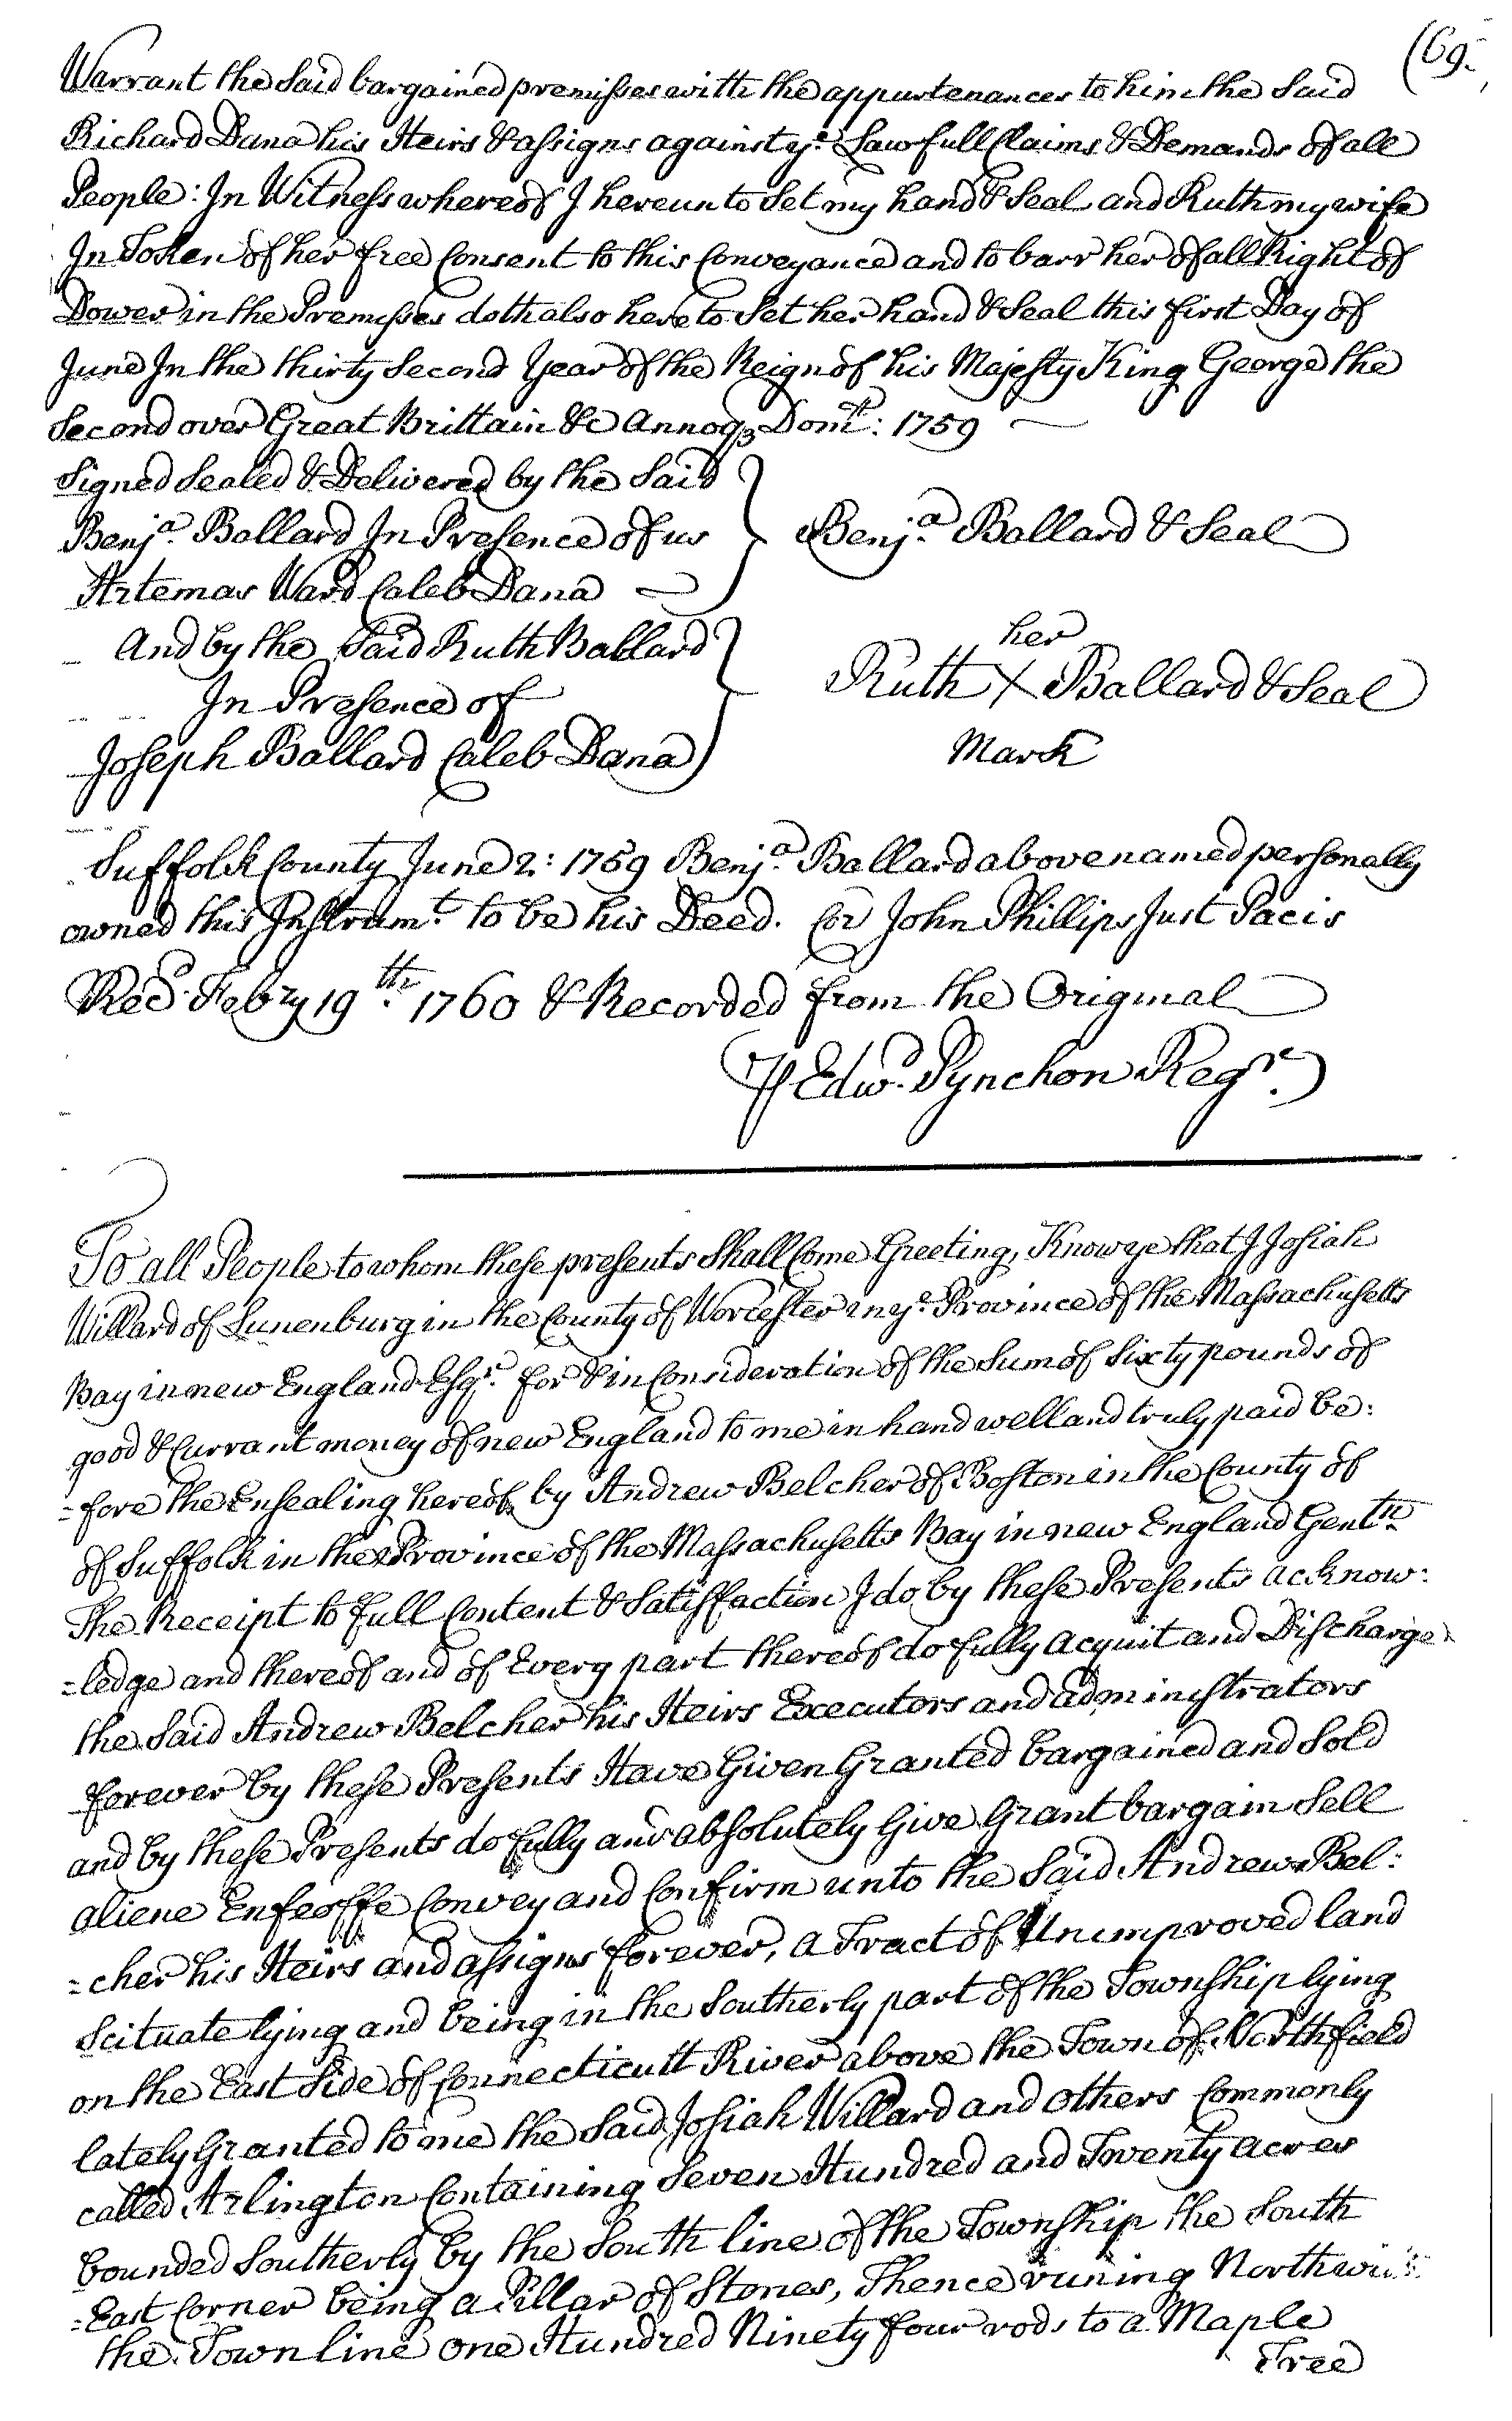 (69.
Warrant the Said bargained premisses with the appurtenances to him the Said
Richard Dana his Heirs & assigns against ye. Lawfull Claims & Demands of all
People: In Witness whereof I hereunto Set my hand & Seal and Ruth my wife
In Token of her free Consent to this Conveyance and to barr her of all Right of
Dower in the Premisses doth also hereto Set her hand & Seal this first Day of
June In the thirty Second Year of the Reign of his Majesty King George the
Second over Great Brittain &c Annoq Dom: 1759
Signed Sealed & Delivered by the Said
Benja. Ballard In Presence of us
Benja. Ballard & Seal
Artemas Ward Caleb Dana
And by the Said Ruth Ballard
In Presence of
Joseph Ballard Caleb Dana
her
Ruth X Ballard & Seal
Mark
Suffolk County June 2: 1759 Benja. Ballard above named personally
owned this Instrumt. to be his Deed. Cor John Phillips Just Pacis
Recd. Febry 19th. 1760 & Recorded from the Original
Edwd. Pynchon Regr.
To all People to whom these presents Shall Come Greeting, Know ye that I Josiah
Willard of Lunenburg in the County of Worcester in ye. Province of the Massachusetts
Bay in new England Esqr. for & in Consideration of the Sum of Sixty pounds of
good & Currant money of new England to me in hand well and truly paid be:
=fore the Ensealing hereof by Andrew Belcher of Boston in the County of
of Suffolk in the Province of the Massachusetts Bay in new England Gentn.
The Receipt to full Content & Satisfaction I do by these Presents acknow:
=ledge and thereof and of Every part thereof do fully acquit and Discharge
the Said Andrew Belcher his Heirs Executors and administrators
forever by these Presents Have Given Granted bargained and Sold
and by these Presents do fully and absolutely Give Grant bargain Sell
aliene Enfeoffe Convey and Confirm unto the Said Andrew Bel:
=cher his Heirs and assigns forever, a Tract of Unimproved land
Scituate lying and being in the Southerly part of the Township lying
on the East Side of Connecticutt River above the Town of Northfield
lately Granted to me the Said Josiah Willard and others Commonly
called Arlington Containing Seven Hundred and Twenty acres
bounded Southerly by the South line of the Township the South
=East Corner being a Pillar of Stones, Thence runing North
the Town line one Hundred Ninety four rods to a Maple
Tree